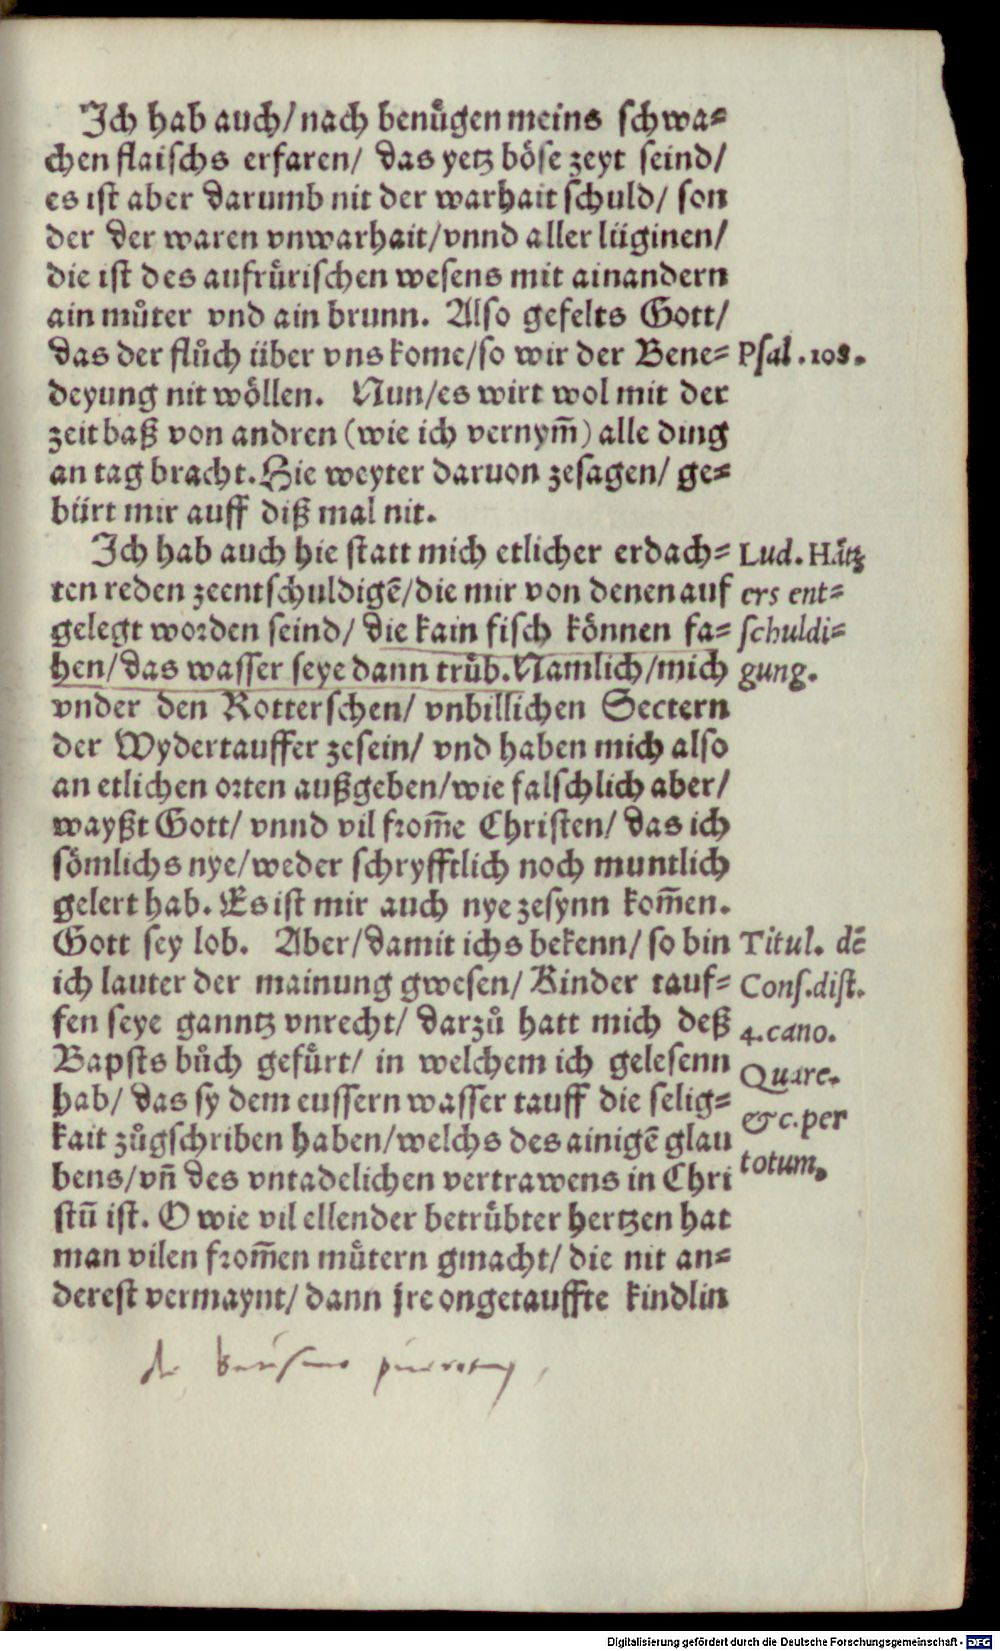 Ich hab auch/ nach benuͤgen meins schwa⸗
chen flaischs erfaren/ das yetz boͤse zeyt seind/
es ist aber darumb nit der warhait schuld/ son
der der waren vnwarhait/ vnnd aller lüginen/
die ist des aufruͤrischen wesens mit ainandern
ain muͦter vnd ain brunn. Also gefelts Gott/
das der fluͦch über vns kome/ so wir der Bene⸗ Psal. 108.
deyung nit woͤllen. Nun/ es wirt wol mit der
zeit baß von andren (wie ich vernym̄) alle ding
an tag bracht. Hie weyter daruon zesagen/ ge⸗
bürt mir auff diß mal nit.
Ich hab auch hie statt mich etlicher erdach⸗ Lud. Haͤtz
ten reden zeentschuldigē/ die mir von denen auf ers ent⸗
gelegt worden seind/ die kain fisch koͤnnen fa⸗ schuldi⸗
hen/ das wasser seye dann truͤb. Namlich/ mich gung.
vnder den Rotterschen/ vnbillichen Sectern
der Wydertauffer zesein/ vnd haben mich also
an etlichen orten außgeben/ wie falschlich aber/
wayßt Gott/ vnnd vil from̄e Christen/ das ich
soͤmlichs nye/ weder schryfftlich noch muntlich
gelert hab. Es ist mir auch nye zesynn kom̄en.
Gott sey lob. Aber/ damit ichs bekenn/ so bin Titul. dē
ich lauter der mainung gwesen/ Kinder tauf⸗ Cons. dist.
fen seye ganntz vnrecht/ darzuͦ hatt mich deß 4. cano.
Bapsts buͦch gefuͤrt/ in welchem ich gelesenn Quare.
hab/ das sy dem eussern wasser tauff die selig⸗ &c. per
kait zuͦgschriben haben/ welchs des ainigē glau totum.
bens/ vn̄ des vntadelichen vertrawens in Chri
stū ist. O wie vil ellender betruͤbter hertzen hat
man vilen from̄en muͤtern gmacht/ die nit an⸗
derest vermaynt/ dann jre ongetauffte kindlin
Digitalisierung gefördert durch die Deutsche Forschungsgemeinschaft - DFG